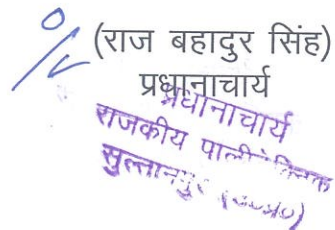 (राज बहादुर सिंह)
प्रधानाचार्य
प्रधानाचार्य
राजकीय पालीटेक्निक
सुल्तानपुर (उ०प्र०)